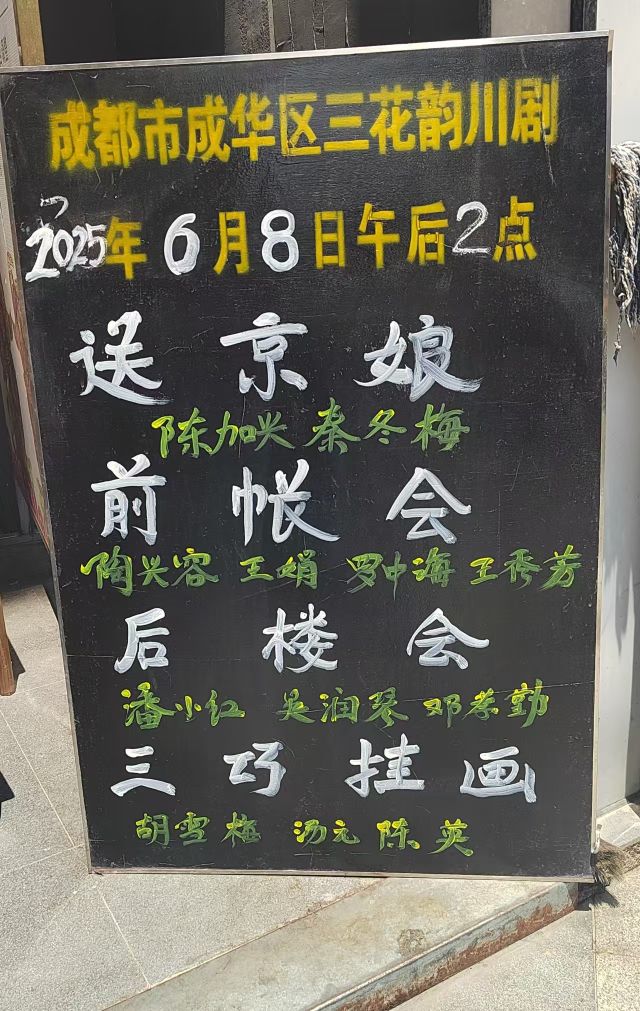 成都市成华区三花韵川剧
2025年6月8日午后2点
送京娘
陈加兴 秦冬梅
前帐会
陶兴容 王娟 罗中海 王秀芳
后楼会
潘小红 吴润琴 邓孝勤
三巧挂画
胡雪梅 汤元 陈英